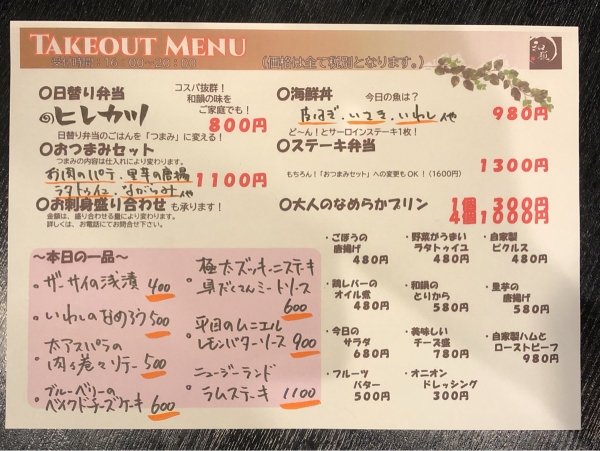 TAKEOUT MENU
受付時間：16：00～20：00
(価格は全て税別となります。)
和楓
○日替り弁当
コスパ抜群！
和韻の味を
ご家庭でも！
ヒレカツ
800円
日替り弁当のごはんを「つまみ」に変える！
○おつまみセット
つまみの内容は仕入れにより変わります。
お肉のパテ、里芋の唐揚
ラタトゥイユ、ながらみ、他
1100円
○お刺身盛り合わせ も承ります！
金額は、盛り合わせる量により変わります。
詳しくは、お電話にてお問合せ下さい。
○海鮮丼
今日の魚は？
いさき、いわし 他
980円
ど～ん！とサーロインステーキ1枚！
○ステーキ弁当
1300円
もちろん！「おつまみセット」への変更もOK！（1600円）
○大人のなめらかプリン
1個 300円
4個 1000円
～本日の一品～
・ザーサイの浅漬 400
・いわしのなめろう 500
・太アスパラの
肉巻きソテー 500
・ブルーベリーの
ベイクドチーズケーキ 600
・極太ズッキーニステーキ
具だくさんミートソース
600
・平目のムニエル
レモンバターソース 900
・ニュージーランド
ラムステーキ 1100
・ごぼうの
唐揚げ
480円
・野菜がうまい
ラタトゥイユ
480円
・自家製
ピクルス
480円
・鶏レバーの
オイル煮
480円
・和韻の
とりから
580円
・里芋の
唐揚げ
580円
・今日の
サラダ
680円
・美味しい
チーズ盛
780円
・自家製ハムと
ローストビーフ
980円
・フルーツ
バター
500円
・オニオン
ドレッシング
300円